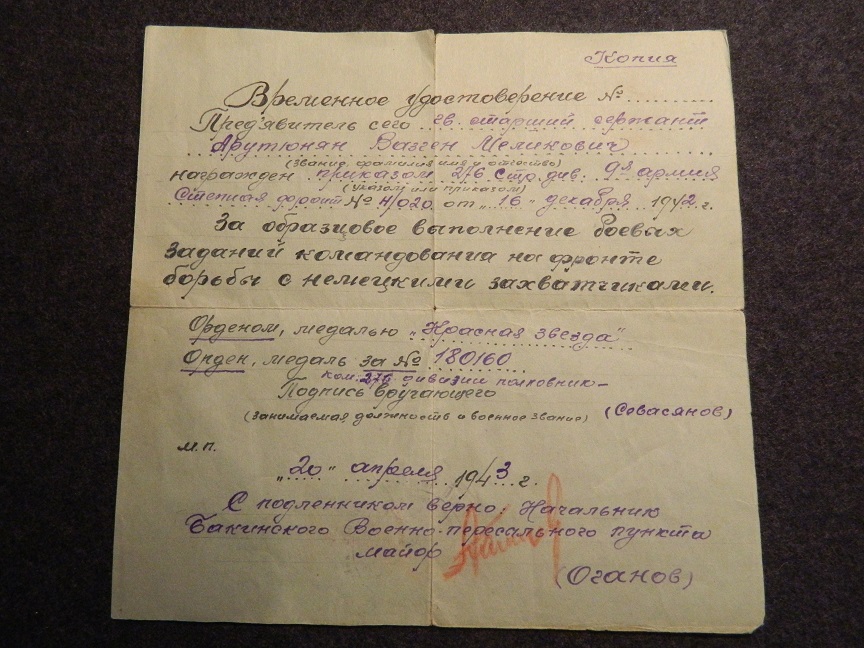 Копия
Временное удостоверение №..........
Пред'явитель сего гв. старший сержант
Арутюнян Вазген Меликович
(звание фамилия имя и отчество)
награжден приказом 276 стр. див. 9й армия
(указом или приказом)
Степная фронт № н/020 от „16" декабря 1942 г.
За образцовое выполнение боевых
заданий командования на фронте
борьбы с немецкими захватчиками.
Орденом, медалью „Красная звезда"
Орден, медаль за № 180160
Ком. 276 дивизии полковник-
Подпись вручающего
(занимаемая должность и военное звание) (Севасянов)
м.п.
„20" апреля 1943 г.
С подленником верно: Начальник
Бакинского Военно-пересального пункта
майор
(Оганов)